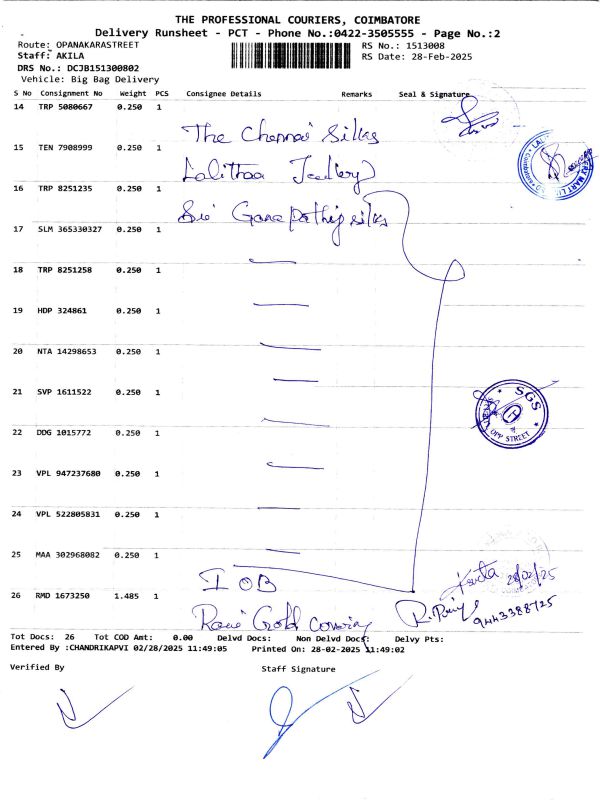 THE PROFESSIONAL COURIERS, COIMBATORE
Delivery Runsheet - PCT - Phone No.:0422-3505555 - Page No.:2
Route: OPANAKARASTREET RS No.: 1513008
Staff: AKILA RS Date: 28-Feb-2025
DRS No.: DCJB151300802
Vehicle: Big Bag Delivery
S No Consignment No Weight PCS Consignee Details Remarks Seal & Signature
14 TRP 5080667 0.250 1
The Chennai Silks
15 TEN 7908999 0.250 1
Lalithaa Jewllery
16 TRP 8251235 0.250 1
Sri Ganapathy silks
17 SLM 365330327 0.250 1
18 TRP 8251258 0.250 1
19 HDP 324861 0.250 1
20 NTA 14298653 0.250 1
21 SVP 1611522 0.250 1
SGS
OPP STREET
22 DDG 1015772 0.250 1
23 VPL 947237680 0.250 1
24 VPL 522805831 0.250 1
25 MAA 302968082 0.250 1
IOB 28/02/25
26 RMD 1673250 1.485 1
Rani Gold covering
9443388725
Tot Docs: 26 Tot COD Amt: 0.00 Delvd Docs: Non Delvd Docs: Delvy Pts:
Entered By :CHANDRIKAPVI 02/28/2025 11:49:05 Printed On: 28-02-2025 11:49:02
Verified By Staff Signature